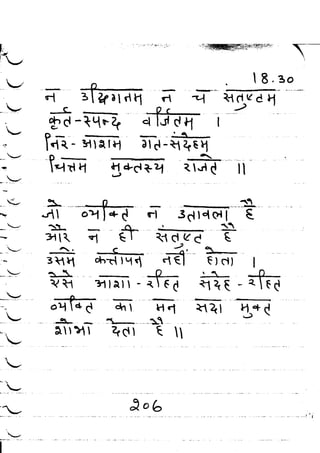 18.30
न उद्विगतम न च सतुष्टम
कृर्त-स्पन्द वर्जितम ।
निर-आशम गत-संदेहम
चित्तम मुक्तस्य राजते ॥
जो व्यक्ति न उतावला है
और न ही संतुष्ट है
उसमें कर्त्तापन नहीं होता ।
ऐसे आशा-रहित संदेह-रहित
व्यक्ति का मन सदा मुक्त
शोभा देता है ॥
२०६